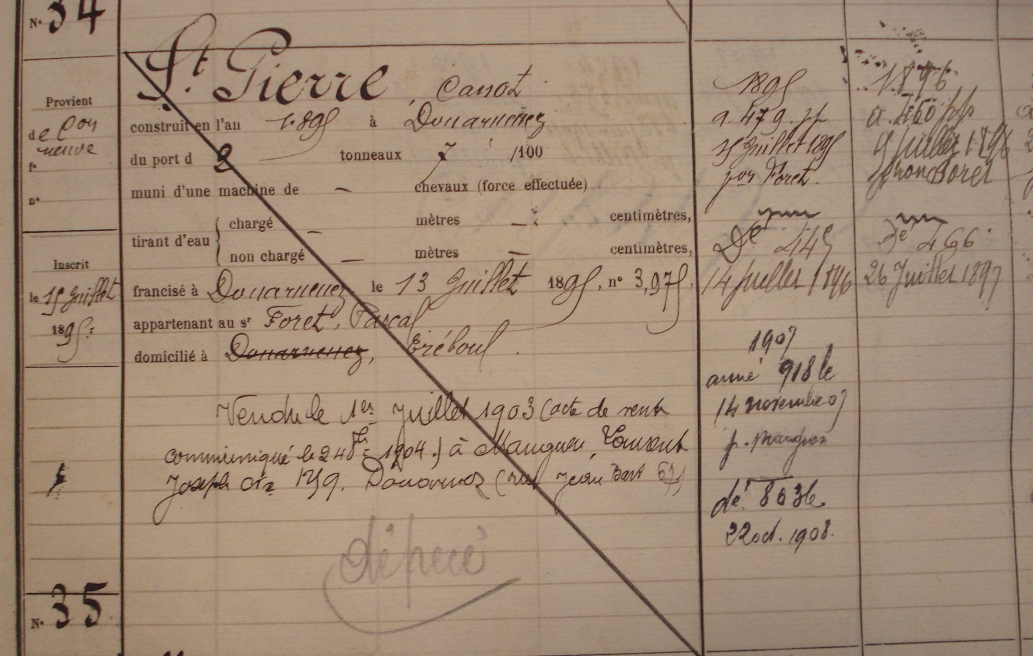 N° 34
Provient
de Con
neuve
f°
n°
Inscrit
le 15 Juillet
1895
St Pierre Canot
construit en l'an 1895 à Douarnenez
du port de 2 tonneaux 7 /100
muni d'une machine de — chevaux (force effectuée)
tirant d'eau
chargé — mètres — centimètres,
non chargé — mètres — centimètres,
francisé à Douarnenez le 13 Juillet 1895, n° 3,975.
appartenant au sr Foret, Pascal
domicilié à Douarnenez, Tréboul.
Vendu le 1er Juillet 1903 (acte de vente
communiqué le 24 1904.) à
Joseph 159. Douarnez (rue Jean Bart
dépecé
1895
a. 479
15 Juillet 1895
par Foret.
Dé 445
14 Juillet 1896
1907
armé 918 le
14 novembre 07
dé. 863 le
22 oct. 1908.
1896
a. 460
Dé 496
26 Juillet 1897
N° 35